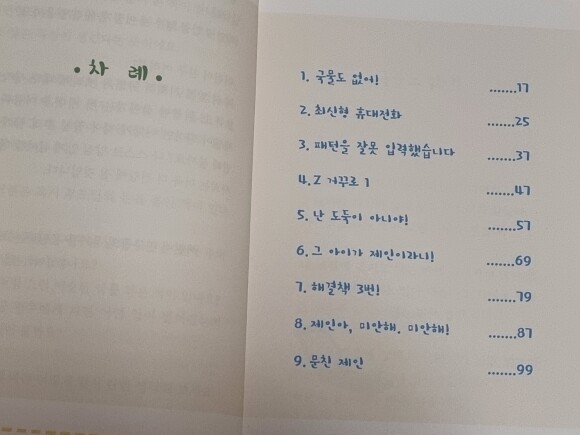 • 차 례 •
1. 국물도 없어! .......17
2. 최신형 휴대전화 .......25
3. 패턴을 잘못 입력했습니다 .......37
4. Z 거꾸로 1 .......47
5. 난 도둑이 아니야! .......57
6. 그 아이가 제인이라니! .......69
7. 해결책 3번! .......79
8. 제인아, 미안해. 미안해! .......87
9. 문친 제인 .......99